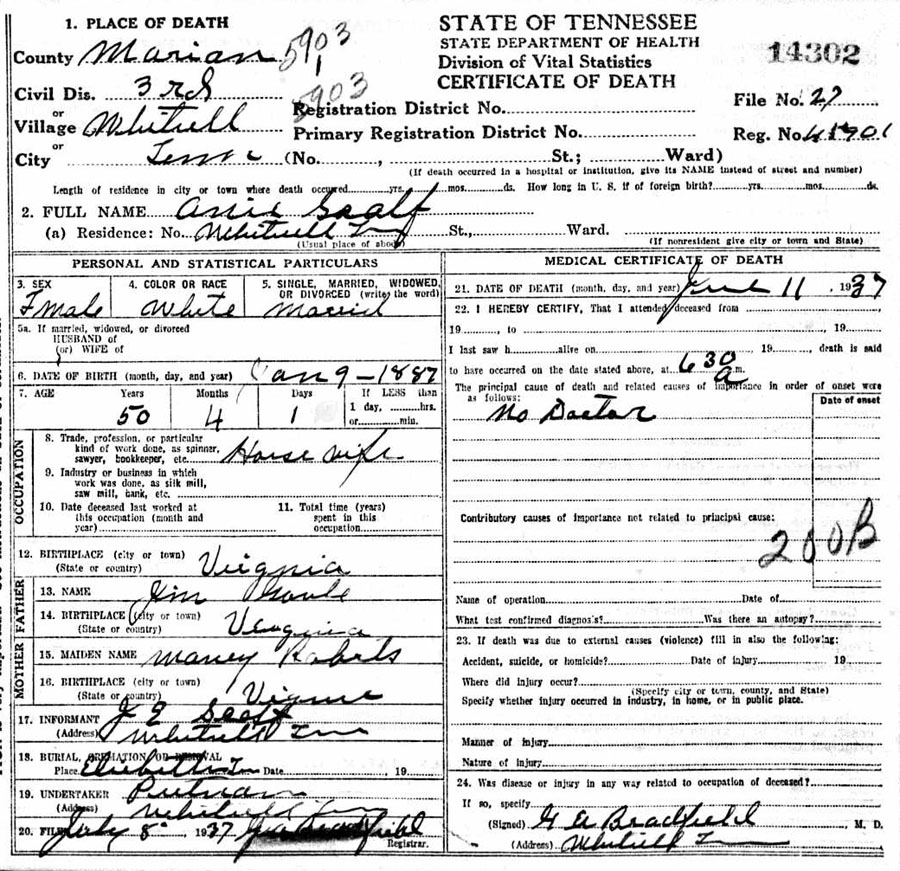 1. PLACE OF DEATH
County Marian 5903
Civil Dis. 3rd 5903
or
Village Whitwell
or
City Tenn (No. , St.; Ward)
STATE OF TENNESSEE
STATE DEPARTMENT OF HEALTH
Division of Vital Statistics
CERTIFICATE OF DEATH
14302
Registration District No.
File No. 27
Primary Registration District No.
Reg. No.
(If death occurred in a hospital or institution, give its NAME instead of street and number)
Length of residence in city or town where death occurred yrs. mos. ds. How long in U. S. if of foreign birth? yrs. mos. ds.
2. FULL NAME
(a) Residence: No. Whitwell St., Ward.
(Usual place of abode)
(If nonresident give city or town and State)
PERSONAL AND STATISTICAL PARTICULARS
3. SEX
Fmale
4. COLOR OR RACE
White
5. SINGLE, MARRIED, WIDOWED, OR DIVORCED (write the word)
Married
5a. If married, widowed, or divorced
HUSBAND of
(or) WIFE of
6. DATE OF BIRTH (month, day, and year) Jan 9-1887
7. AGE Years Months Days If LESS than
50 4 1 1 day, hrs.
or min.
OCCUPATION
8. Trade, profession, or particular
kind of work done, as spinner,
sawyer, bookkeeper, etc. House wife
9. Industry or business in which
work was done, as silk mill,
saw mill, bank, etc.
10. Date deceased last worked at
this occupation (month and
year)
11. Total time (years)
spent in this
occupation
12. BIRTHPLACE (city or town)
(State or country) Virgnia
FATHER
13. NAME Jim
14. BIRTHPLACE (city or town)
(State or country) Virgnia
MOTHER
15. MAIDEN NAME
16. BIRTHPLACE (city or town)
(State or country)
17. INFORMANT J E
(Address) Whitwell Tenn
18. BURIAL, CREMATION OR REMOVAL
Place Date , 19
19. UNDERTAKER Putnam
(Address) Whitwell Tenn
20. FILED July 8 1937 Bradfield
Registrar.
MEDICAL CERTIFICATE OF DEATH
21. DATE OF DEATH (month, day, and year) June 11 , 1937
22. I HEREBY CERTIFY, That I attended deceased from
19 , to , 19
I last saw h alive on , 19 , death is said
to have occurred on the date stated above, at 6 30 a m.
The principal cause of death and related causes of importance in order of onset were
as follows:
Date of onset
No Doctor
Contributory causes of importance not related to principal cause:
200B
Name of operation Date of
What test confirmed diagnosis? Was there an autopsy?
23. If death was due to external causes (violence) fill in also the following:
Accident, suicide, or homicide? Date of injury 19
Where did injury occur?
(Specify city or town, county, and State)
Specify whether injury occurred in industry, in home, or in public place.
Manner of injury
Nature of injury
24. Was disease or injury in any way related to occupation of deceased?
If so, specify
(Signed) G A Bradfield M. D.
(Address) Whitwell Tenn